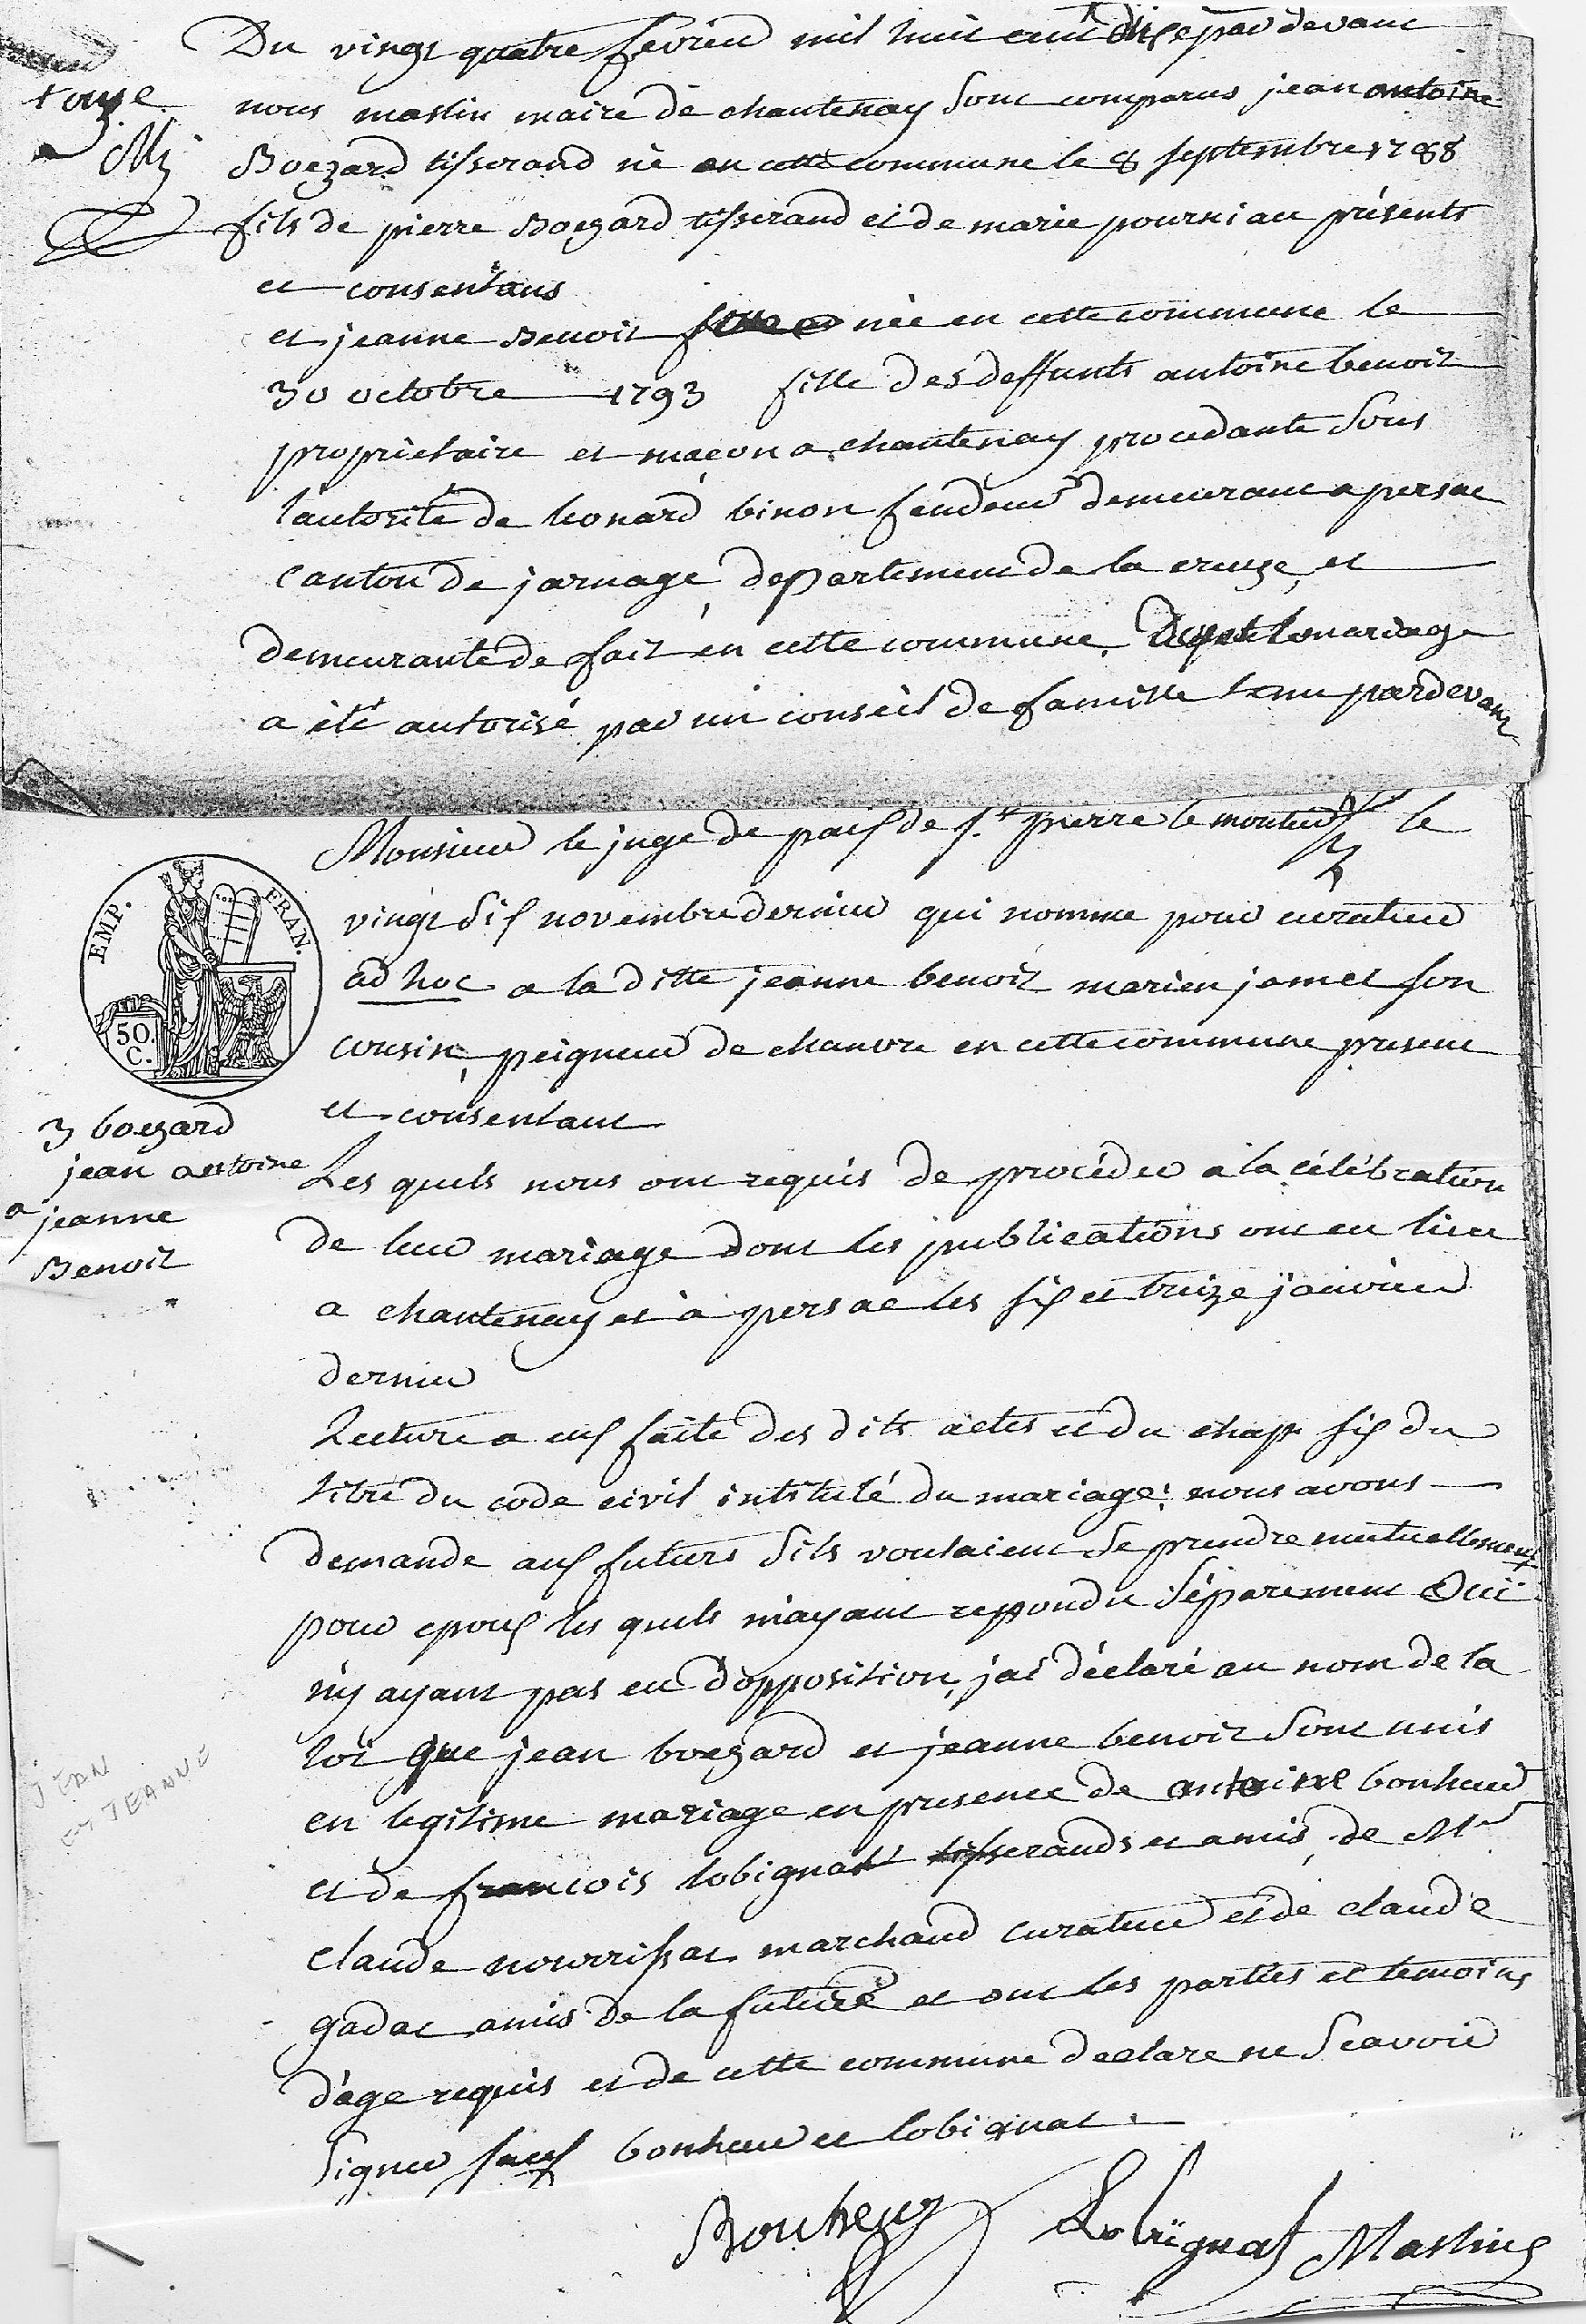 Du vingt quatre fevrier mil huit cent dix par devant
+ onze
nous maslin maire de chantenay sont comparus jean antoine
Boezard tisserand né en cette commune le 8 septembre 1788
fils de pierre Boezard tisserand et de marie pourniau présents
et consentans
et jeanne Benoit née en cette commune le
30 octobre 1793 fille des deffunts antoine benoit
propriétaire et maçon a chantenay procedante sous
l'autorité de leonard binon fendeur demeurant a persac
canton de jarnage, departement de la creuze, et
demeurante de fait en cette commune. Duquel mariage
a été autorisé par un conseil de famille tenu pardevant
Monsieur le juge de paix de st pierre le moutier le
EMP. FRAN.
50.
C.
vingt six novembre dernier qui nomme pour curateur
ad hoc a la ditte jeanne benoit marien jamet son
cousin, peigneur de chanvre en cette commune present
et consentant
3 boezard
jean antoine
a jeanne
Benoit
Les quels nous ont requis de procéder a la célébration
de leur mariage dont les publications ont eu lieu
a chantenay et à persac les six et treize janvier
dernier
Lecture a eux faite des dits actes et du chap. six du
titre du code civil intitulé du mariage: nous avons
demande aux futurs sils voulaient se prendre mutuellement
pour epoux les quels m'ayant reppondu séparement Oui
n'y ayant pas eu d'opposition, jai déclaré au nom de la
loi que jean boezard et jeanne benoit sont unis
JEAN
ET JEANNE
en legitime mariage en presence de antoine bonheur
et de francois lobignat tisserands et amis, de Mr
claude nourrissat marchand curateur et de claude
gadat amis de la future et ont les parties et temoins
d'age requis et de cette commune declare ne scavoir
signer sauf bonheur et lobignat.
Bonheur Lobignat Maslin